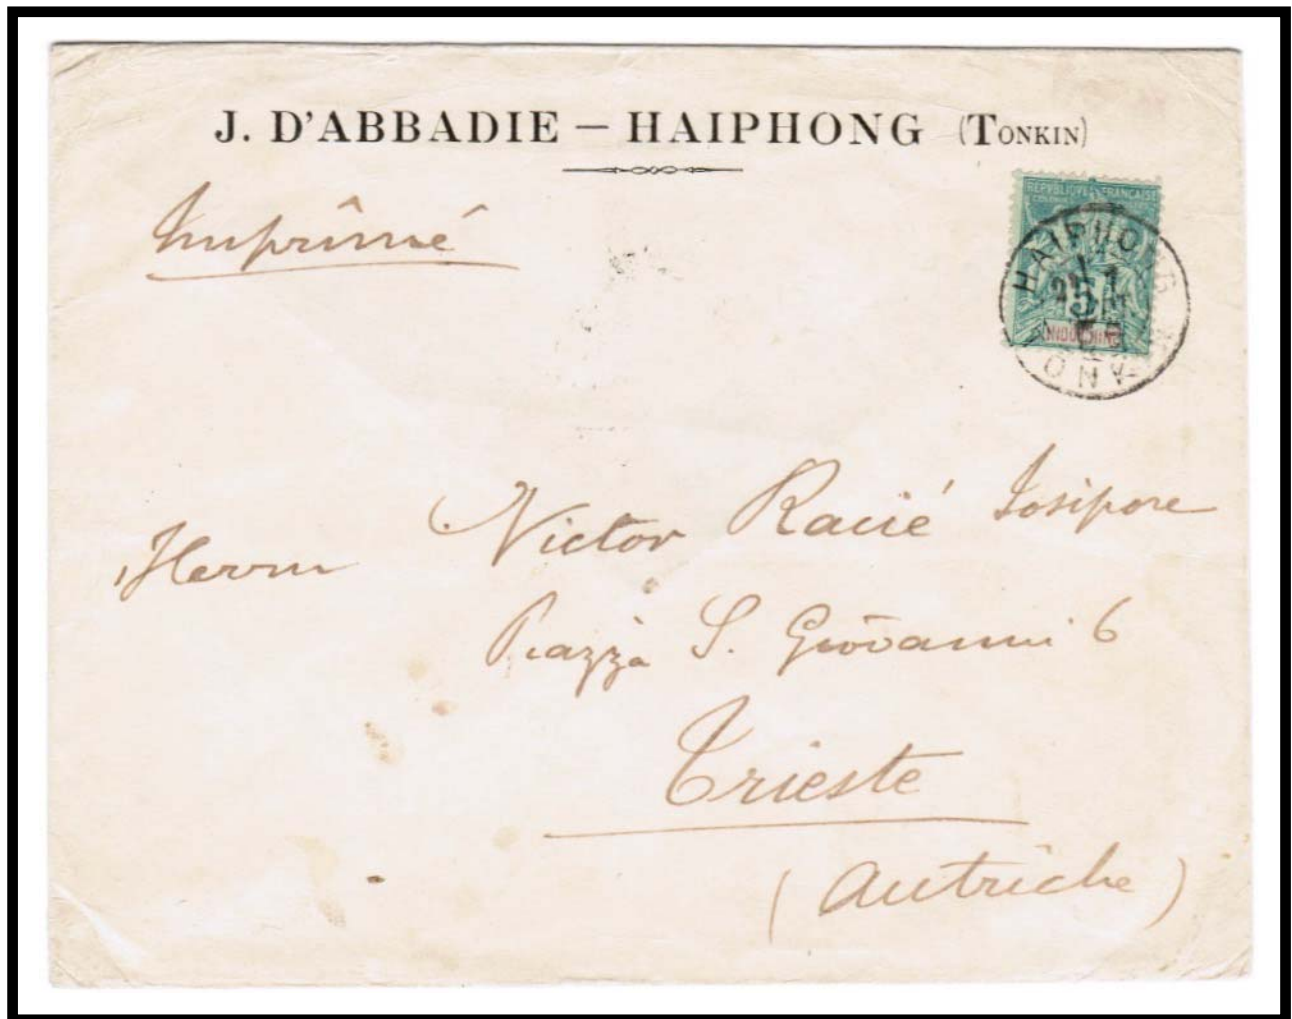 J. D'ABBADIE – HAIPHONG (TONKIN)
Imprimé
REPUBLIQUE FRANÇAISE
HAIPHONG
5
INDO-CHINE
Herrn Victor Racié Iosipore
Piazza S. Giovanni 6
Trieste
(Autriche)